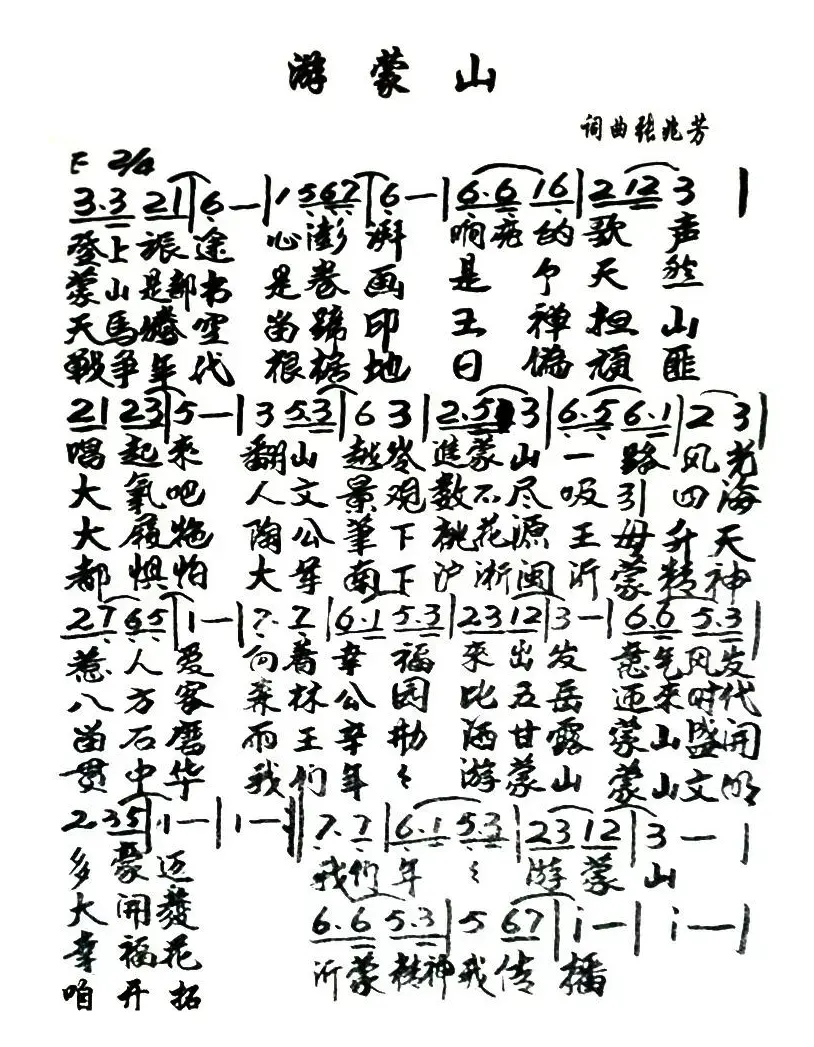 游蒙山
词曲张兆芳
F 2/4
3.3 21 | 6 — | 1 567 | 6 — | 6.6 16 | 2 12 | 3 |
登上旅途 心澎湃 响亮的歌声
蒙山是部书 是卷画 是个天然
天马腾空 留蹄印 王禅担山
战争年代 根据地 日伪顽匪
21 23 | 5 — | 3 5.3 | 6 3 | 2.5 3 | 6.5 6.1 | 2 3 |
唱起来 翻山越岭进蒙山一路风光
大氧吧 人文景观数不尽吸引四海
大屐拖 陶公笔下桃花源王母升天
都惧怕 大军南下沪浙闽沂蒙精神
27 65 | i — | 7. 7 | 6.1 5.3 | 23 12 | 3 — | 6.6 5.3 |
惹人爱 向着幸福来出发意气风发
八方客 森林公园比五岳迎来时代
留石磨 雨王辛勤洒甘露蒙山盛开
贯中华 我们年々游蒙山蒙山文明
2.35 | i — | i — :|| 7. 7 | 6.1 5.3 | 23 12 | 3 — |
多豪迈 我们年々游蒙山
大开发
幸福花 6.6 5.3 | 5 67 | i — | i — |
咱开拓 沂蒙精神我传播